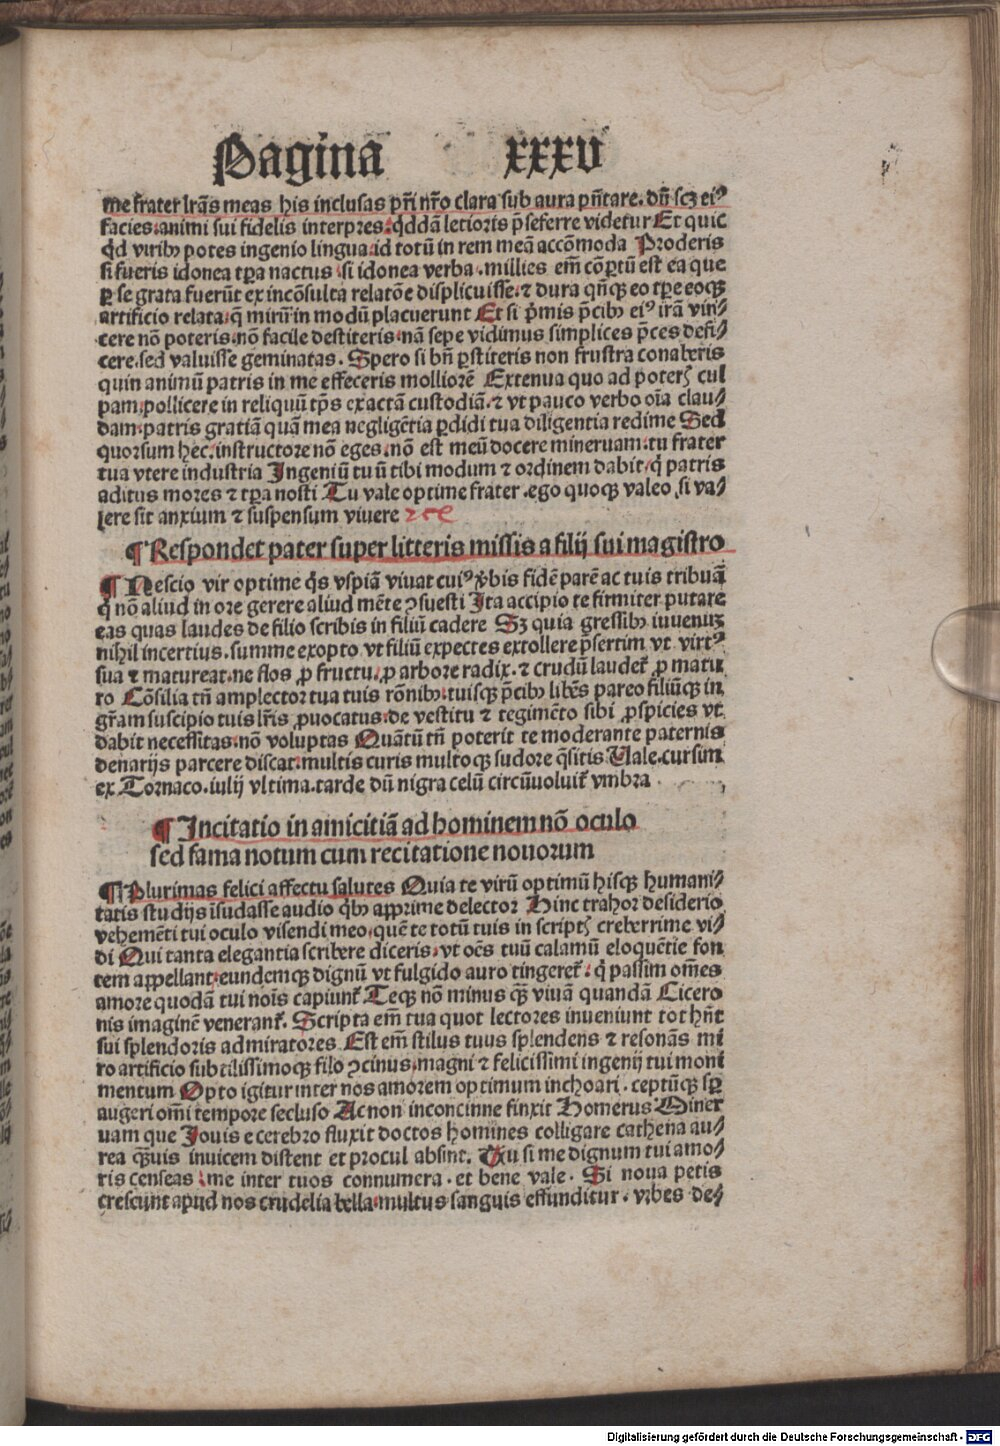 Pagina xxxv
me frater lr̄as meas his inclusas pr̄i nr̄o clara sub aura pn̄tare. dū scꝫ eiꝰ
facies. animi sui fidelis interpres. q̇ddā letioris p̄seferre videtur Et quic
q̇d viribꝰ potes ingenio lingua id totū in rem meā accōmoda Proderis
si fueris idonea tꝑa nactus si idonea verba. millies em̄ cōꝑtū est ea que
ꝑ se grata fuerūt ex incōsulta relatōe displicuisse. ⁊ dura qn̄qꝫ eo tꝑe eoqꝫ
artificio relata. q̄ mirū in modū placuerunt Et si p̄mis p̄cibꝰ eiꝰ irā vin⸗
cere nō poteris. nō facile destiteris. nā sepe vidimus simplices p̄ces defi⸗
cere. sed valuisse geminatas. Spero si bn̄ ꝑstiteris non frustra conaberis
quin animū patris in me effeceris molliorē Extenua quo ad poteris cul
pam. pollicere in reliquū tp̄s exactā custodiā. ⁊ vt pauco verbo oīa clau⸗
dam. patris gratiā quā mea negligētia ꝑdidi tua diligentia redime Sed
quorsum hec. instructore nō eges. nō est meū docere mineruam. tu frater
tua vtere industria Ingeniū tuū tibi modum ⁊ ordinem dabit. q̇ patris
aditus mores ⁊ tꝑa nosti Tu vale optime frater. ego quoqꝫ valeo. si va⸗
lere sit anxium ⁊ suspensum viuere
¶ Respondet pater super litteris missis a filij sui magistro
¶ Nescio vir optime q̇s vspiā viuat cuiꝰ v̓bis fidē parē ac tuis tribuā
q̇ nō aliud in ore gerere aliud mēte ↄsuesti Ita accipio te firmiter putare
eas quas laudes de filio scribis in filiū cadere Sꝫ quia gressibꝰ iuuenū
nihil incertius. summe exopto vt filiū expectes extollere p̄sertim vt virtꝰ
sua ⁊ matureat. ne flos ꝓ fructu. ꝓ arbore radix. ⁊ crudū laudet̉ ꝓ matu
ro Cōsilia tn̄ amplector tua tuis rōnibꝰ. tuisqꝫ p̄cibꝰ libēs pareo filiūqꝫ in
gr̄am suscipio tuis lr̄is ꝓuocatus. de vestitu ⁊ tegimēto sibi ꝓspicies vt
dabit necessitas. nō voluptas Quātū tn̄ poterit te moderante paternis
denarijs parcere discat. multis curis multoqꝫ sudore q̄sitis Uale. cursim
ex Tornaco. iulij vltima. tarde dū nigra celū circūuoluit̉ vmbra.
¶ Incitatio in amicitiā ad hominem nō oculo
sed fama notum cum recitatione nouorum
¶ Plurimas felici affectu salutes Quia te virū optimū hisqꝫ humani⸗
tatis studijs īsudasse audio q̇bꝰ apprime delector Hinc trahor desiderio
vehemēti tui oculo visendi meo. quē te totū tuis in scriptis creberrime vi⸗
di Qui tanta elegantia scribere diceris. vt oēs tuū calamū eloquētie fon
tem appellant. eundemqꝫ dignū vt fulgido auro tingeret̉. q̇ passim om̄es
amore quodā tui noīs capiunt̉ Teqꝫ nō minus qꝫ viuā quandā Cicero
nis imaginē venerant̉. Scripta em̄ tua quot lectores inueniunt tot hn̄t
sui splendoris admiratores Est em̄ stilus tuus splendens ⁊ resonās mi
ro artificio subtilissimoqꝫ filo ↄcinus. magni ⁊ felicissimi ingenij tui moni
mentum Opto igitur inter nos amorem optimum inchoari. ceptūqꝫ sꝑ
augeri om̄i tempore secluso Ac non inconcinne finxit Homerus Miner
uam que Jouis e cerebro fluxit doctos homines colligare cathena au⸗
rea qꝫuis inuicem distent et procul absint. Tu si me dignum tui amo⸗
ris censeas. me inter tuos connumera. et bene vale. Si noua petis
crescunt apud nos crudelia bella. multus sanguis effunditur. vrbes de⸗
Digitalisierung gefördert durch die Deutsche Forschungsgemeinschaft - DFG